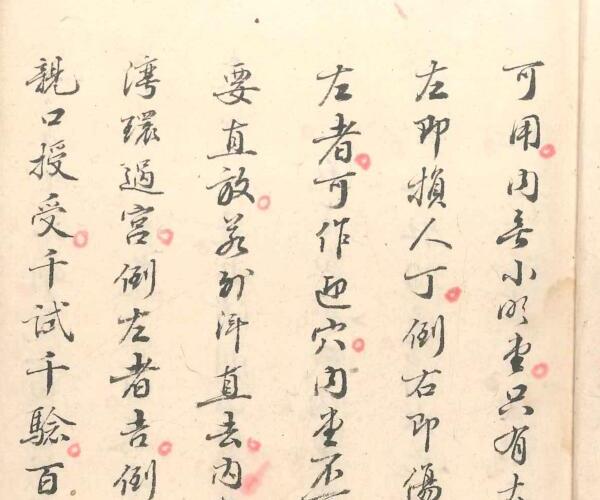 可用内無小明堂只有
左即損人丁倒右即傷
左者可作迎穴内堂不
要直放若到洱直去内
湾環過宫倒左者吉倒
親口授受千試千驗百